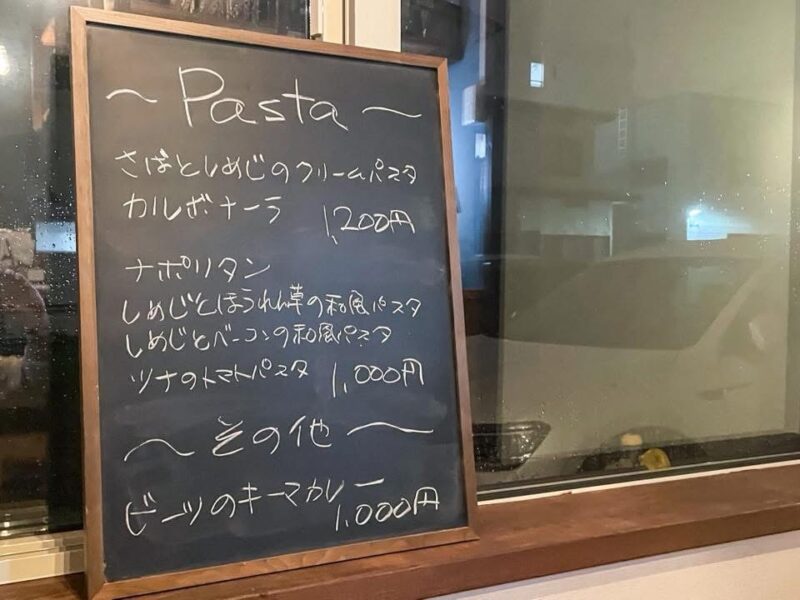 ～ Pasta ～
さばとしめじのクリームパスタ
カルボナーラ 1,200円
ナポリタン
しめじとほうれん草の和風パスタ
しめじとベーコンの和風パスタ
ツナのトマトパスタ 1,000円
～ その他 ～
ビーツのキーマカレー
1,000円